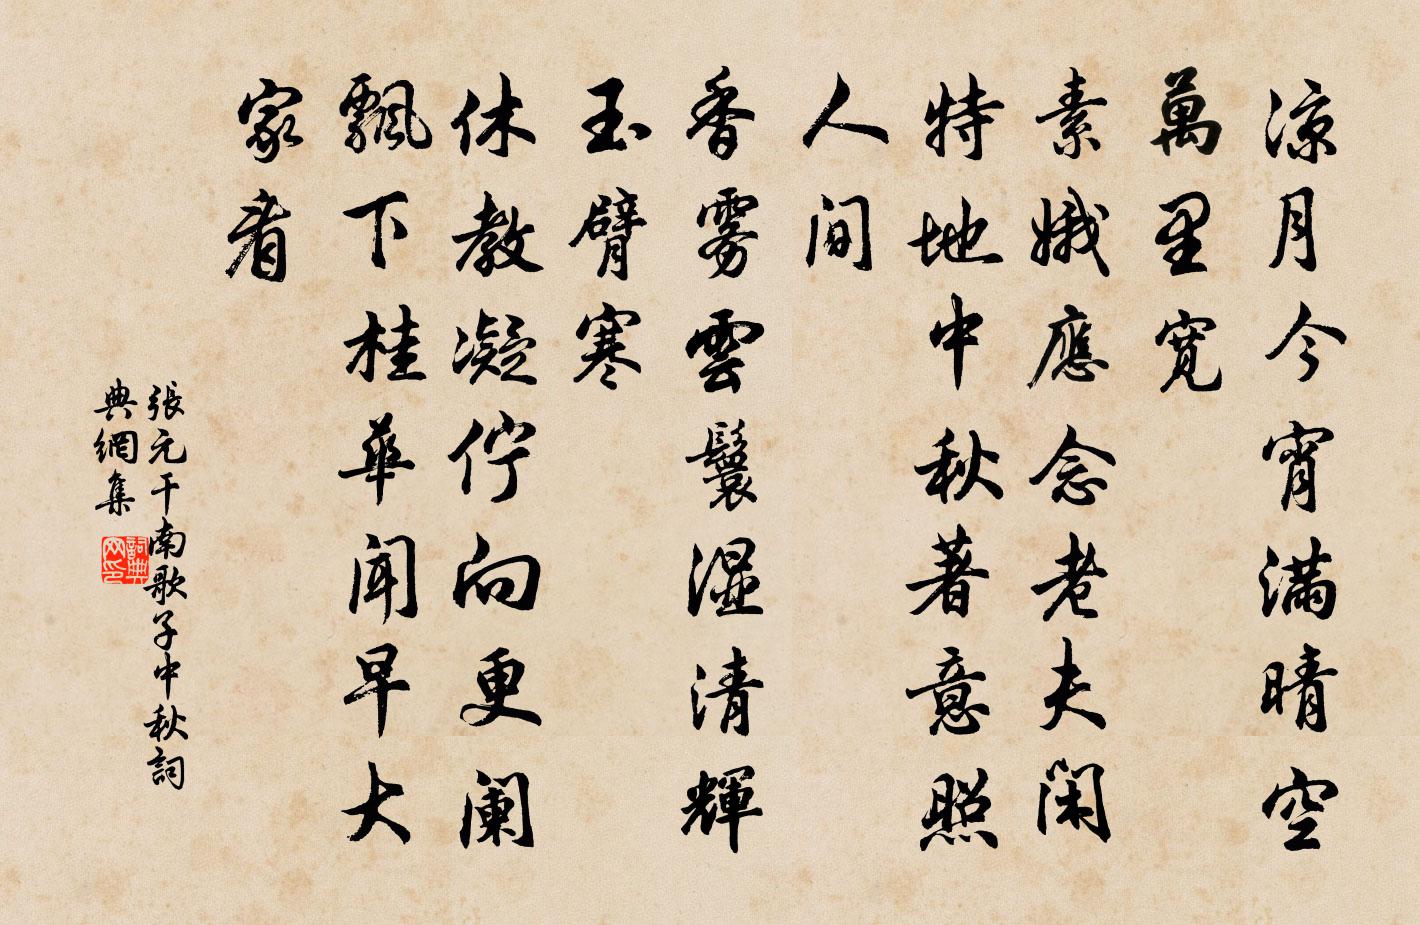 涼月今宵滿晴空
萬里寬
素娥應念老夫閑
特地中秋著意照
人間
香雾雲鬟濕清輝
玉臂寒
休教凝佇向更阑
飄下桂華聞早大
家看
張元干南歌子中秋詞
典網集
詞典
网印